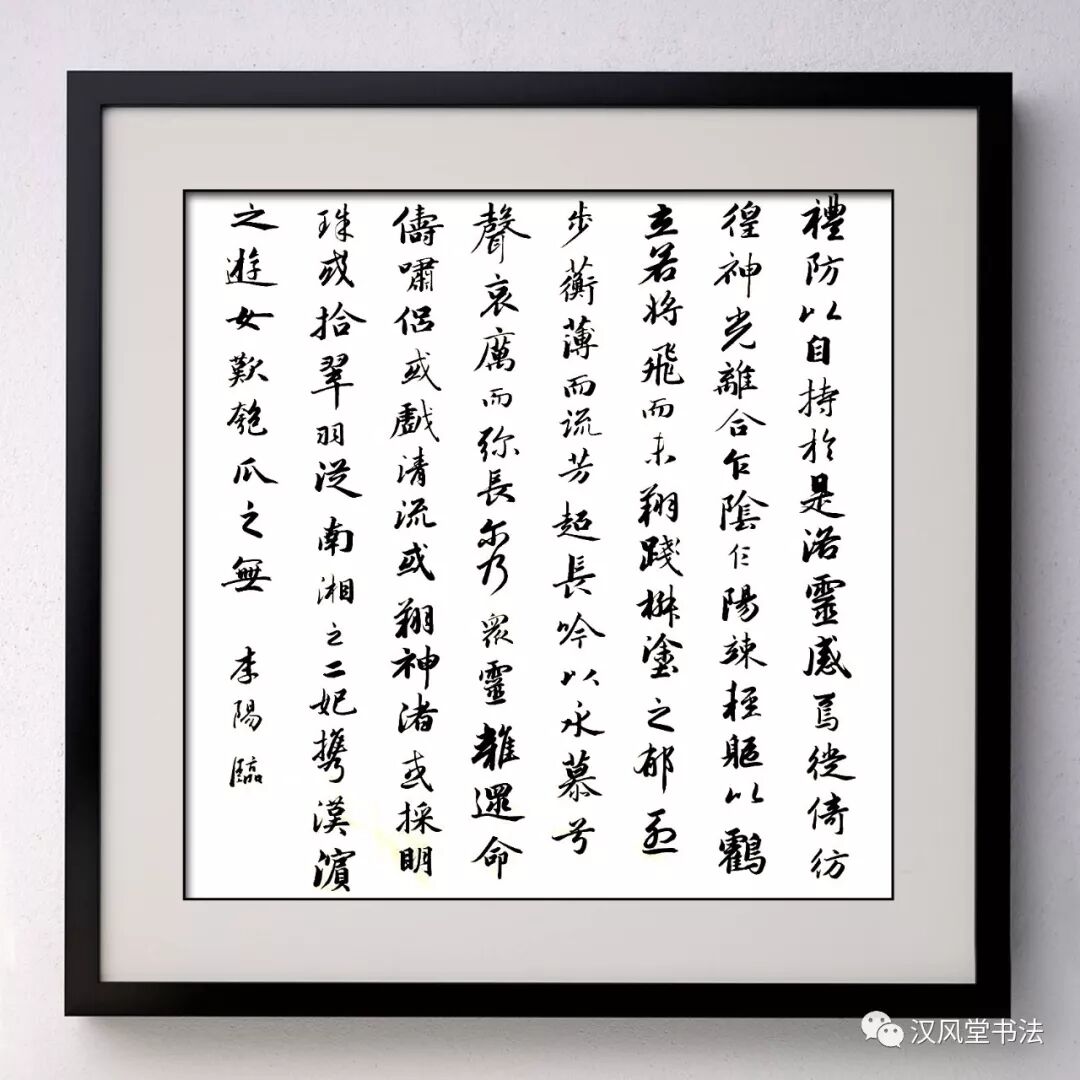 禮防以自持於是洛靈感焉徙倚彷
徨神光離合乍陰乍陽竦軽軀以鸖
立若将飛而未翔踐椒塗之郁烈
步蘅薄而流芳超長吟以永慕兮
聲哀厲而弥長尒乃衆靈雜遝命
儔嘯侣或戲清流或翔神渚或採明
珠或拾翠羽從南湘之二妃携漢濱
之遊女歎匏瓜之無
李陽臨
汉风堂书法